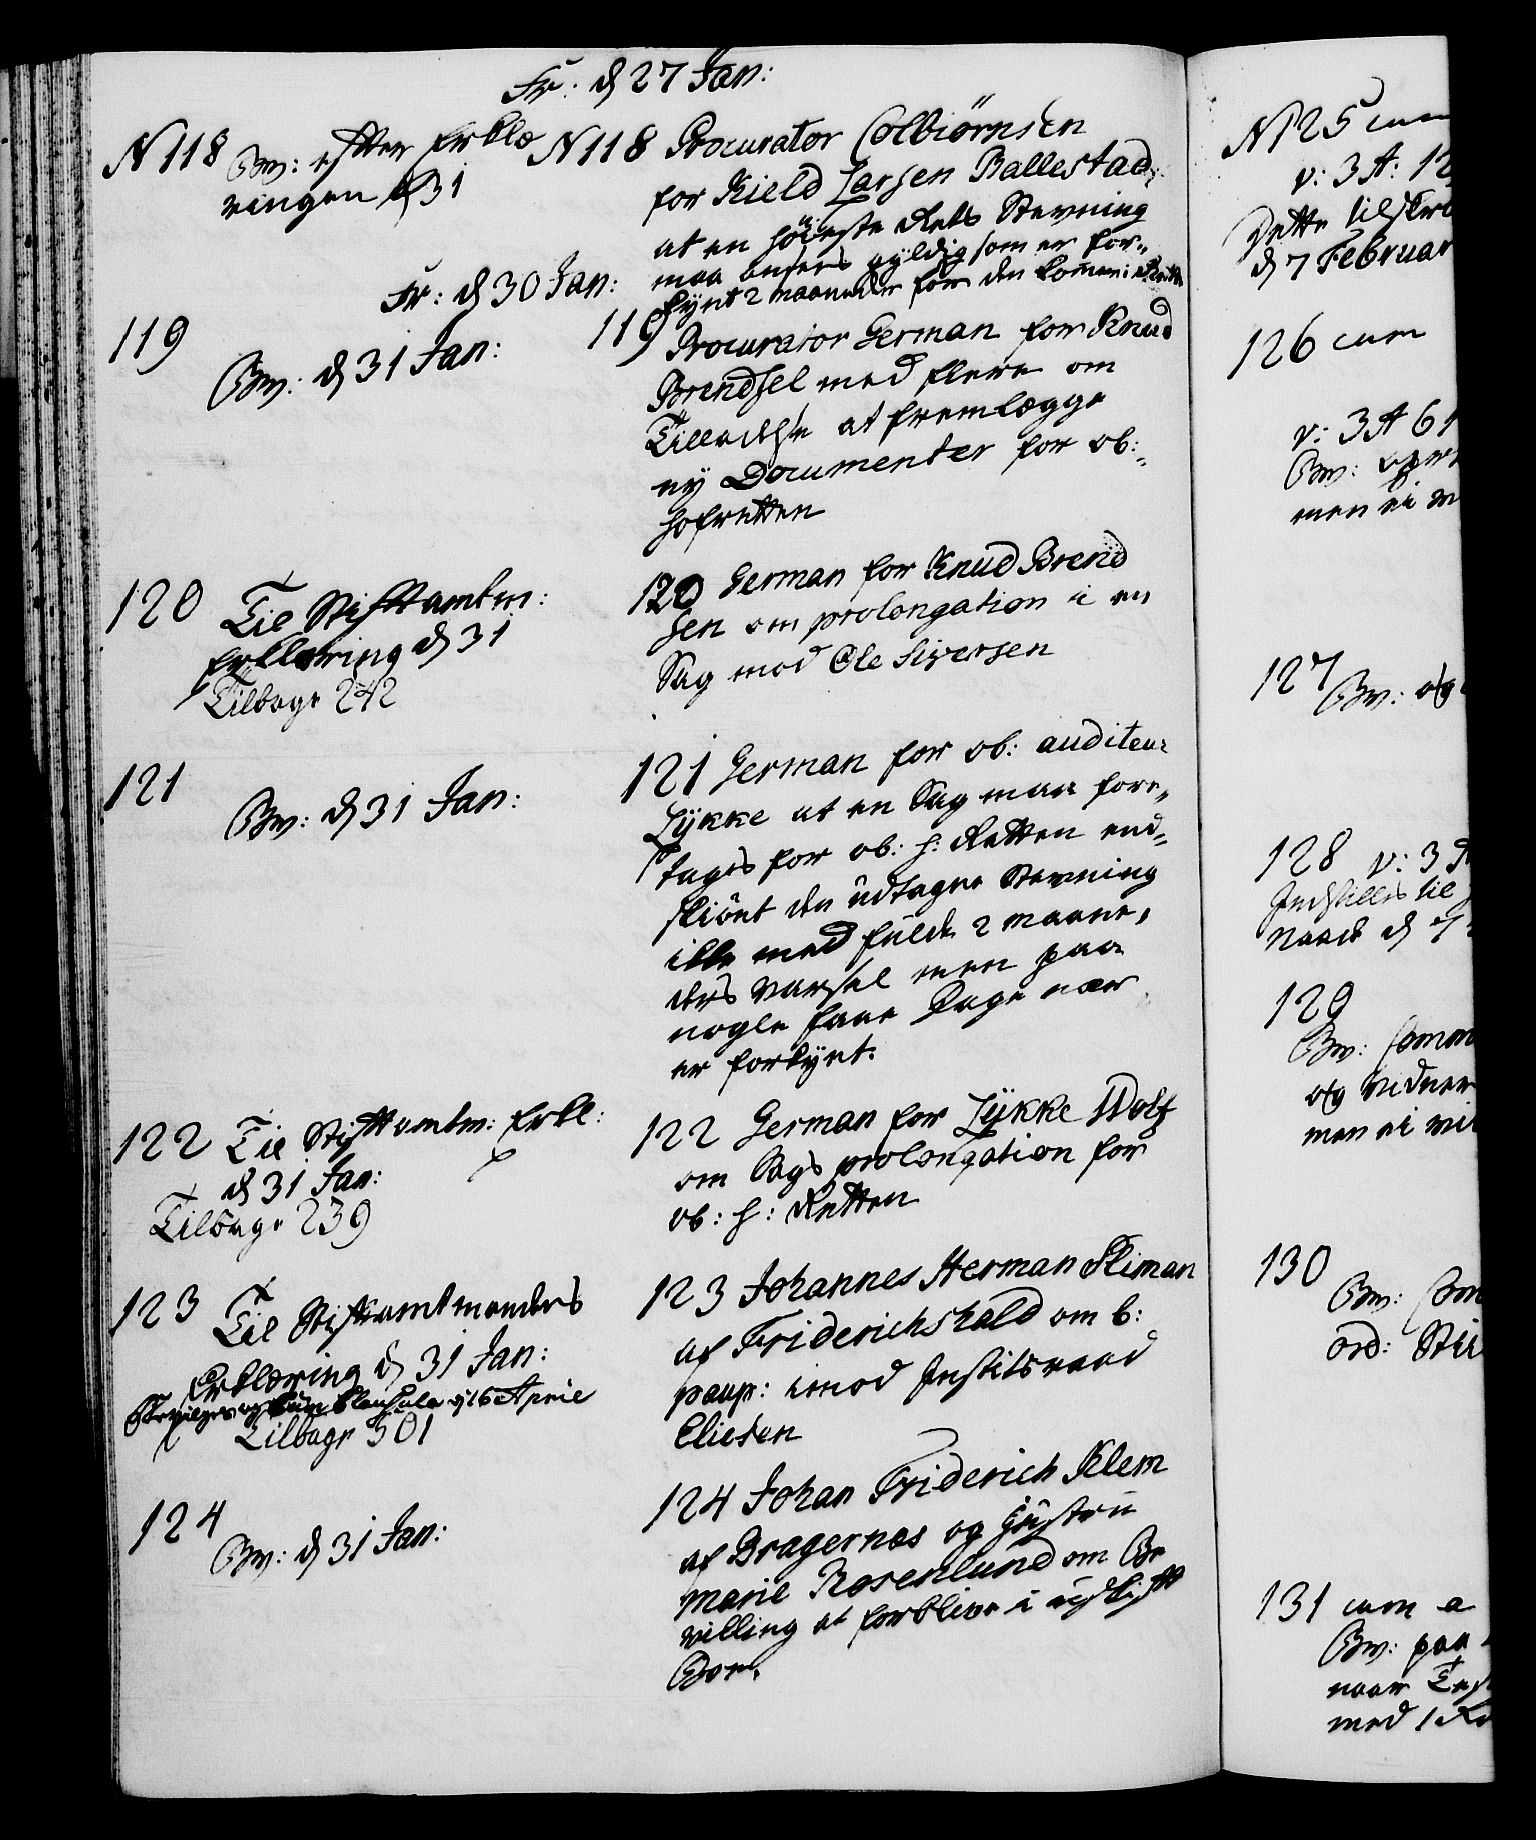 Fr: d 27 Jan:
N 118 Bw: efter Erklæ
ringen d 31
N 118 Procurator Colbiørnsen
for Kield Larsen Ballestad
at en Höieste Rets Stevning
maa ansees gyldig som er for-
kynt 2 maaneder for den
Fr: d 30 Jan:
119
Bw: d 31 Jan:
119 Procurator German for Knud
Brendsel med flere om
Tilladelse at fremlægge
ny Documenter for ob:
Hofretten
120 Til Stiftamtm:
Erklæring d 31
Tilbage 242
120 German for Knud Brend
sen om prolongation i en
Sag mod Ole Siversen
121
Bw: d 31 Jan:
121 German for ob: auditeur
Lykke at en Sag maa fore-
tages for ob: H: Retten end-
skiönt den udtagne Stevning
ikke med fulde 2 maane-
ders Varsel men paa
nogle faae Dage nær
er forkynt.
122 Til Stiftamtm: Erkl:
d 31 Jan:
Tilbage 239
122 German for Lykke Wolf
om Sags prolongation for
ob: H: Retten
123 Til Stiftamtmandens
Erklæring d 31 Jan:
cum Clausula d 16 April
Tilbage 501
123 Johannes Herman Sliman
af Friderichshald om b:
paup: imod Justitsraad
Eliesen
124
Bw: d 31 Jan:
124 Johan Friderich Klem
af Bragernæs og Hustru
Marie Rosenlund om Be
villing at forblive i uskift
Boe.
N 125 cum
v: 3 A: 12
Dette tilskri
d 7 Februar
126 cum
v: 3 A 61
Bw:
men ei
127
Bw: og
128 v: 3
Indstilles til
Naade d
129
Bw:
og Vidner
men ei
130
Bw:
ord:
131 cum a
Bw: paa
naar
med 1